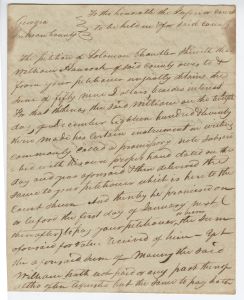 To the honorable the Superior Court
Georgia
to be holden for said County
County
The petition of Solomon Chandler sheweth that
William Hancock of said County owes to &
from your petitioner unjustly detains the
sum of fifty nine Dollars besides interest
For that whereas the said William on the
day of December Eighteen hundred & twenty
three made his certain instrument in writing
commonly called a promissory note subscribed
his with his own proper hand dated on the
day and year aforesaid & then delivered the
same to your petitioner which is here to the
Court shewn And thereby he promised on
or before the first day of January next
thereafter to pay your petitioner the sum
aforesaid for value received of him yet
the aforesaid sum of Money the said
William hath not paid or any part thereof
altho often requested but the same to pay hath